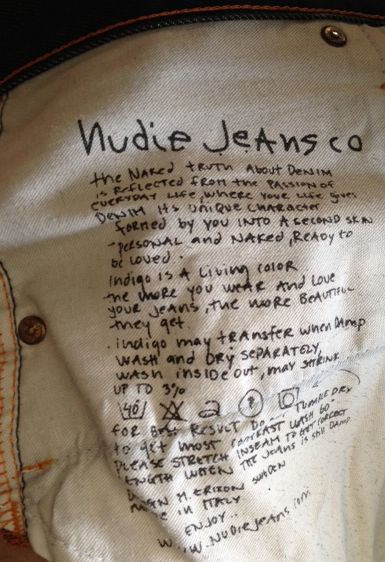 Nudie Jeans co
the NAKed tRUTH About DENIM
is Reflected from the PASSION of
EVERYDAY LIFE, WHERE YOUR LIFE gives
DENIM its UNIQUE CHARACTER
formed by you INTO A SECOND SKIN
-personal and NAKED, READY to
be loved.
Indigo IS A Living COLOR
the more you WEAR AND LOVE
your JEANS, the more BEAUTIFUL
they get.
.indigo may tRANSFER when DAmp
WASH and DRY SEPARATELY,
WASH INSIDE OUT, MAY SHRINK
UP TO 3%
40
FOR BEST RESULT TUMBLE DRY
to get MOST CONTRAST WASH 60
PLEASE STRETCH INSEAM TO get CORRECT
LENGTH WHEN THE JEANS is still DAMP
M. ERIXON SWEDEN
MADE IN ITALY
ENJOY..
WWW.NUDIEJEANS.com